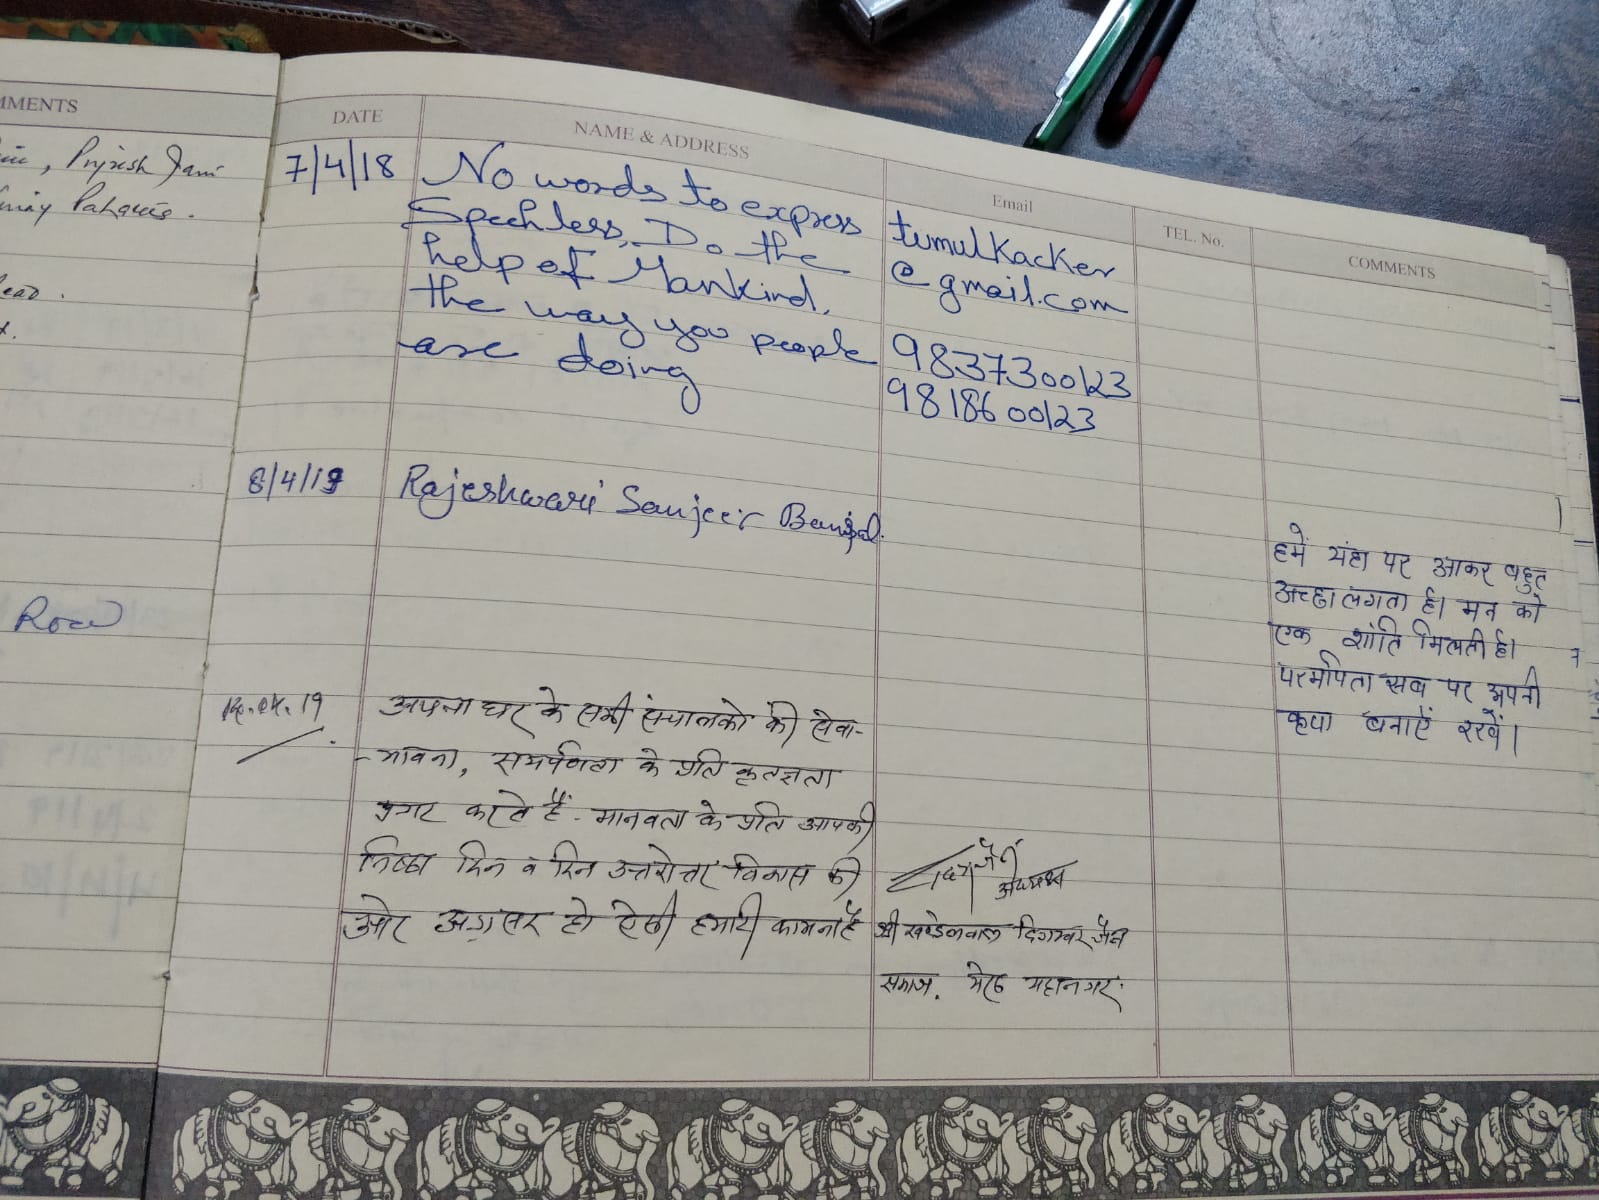 MMENTS
, Prijesh Jain
Row
DATE
NAME & ADDRESS
Email
TEL. No.
COMMENTS
7/4/18
No words to express
Speehless, Do the
help of Mankind.
the way you people
are doing
tumulkacker
@gmail.com
9837300123
9818600123
8/4/19
Rajeshwari Sanjeev
हमें यंहा पर आकर बहुत
अच्छा लगता है। मन को
एक शांति मिलती है।
परमपिता सब पर अपनी
कृपा बनाऐं रखें।
अपना घर के सभी संचालको की सेवा-
-भावना, समर्पणता के प्रति कृतज्ञता
प्रगट करते हैं. मानवता के प्रति आपकी
निष्ठा दिन व दिन उत्तरोत्तर विकास की
ओर अग्रसर हो ऐसी हमारी कामना है
जैन
अध्यक्ष
श्री खण्डेलवाल दिगम्बर जैन
समाज. मेरठ महानगर.